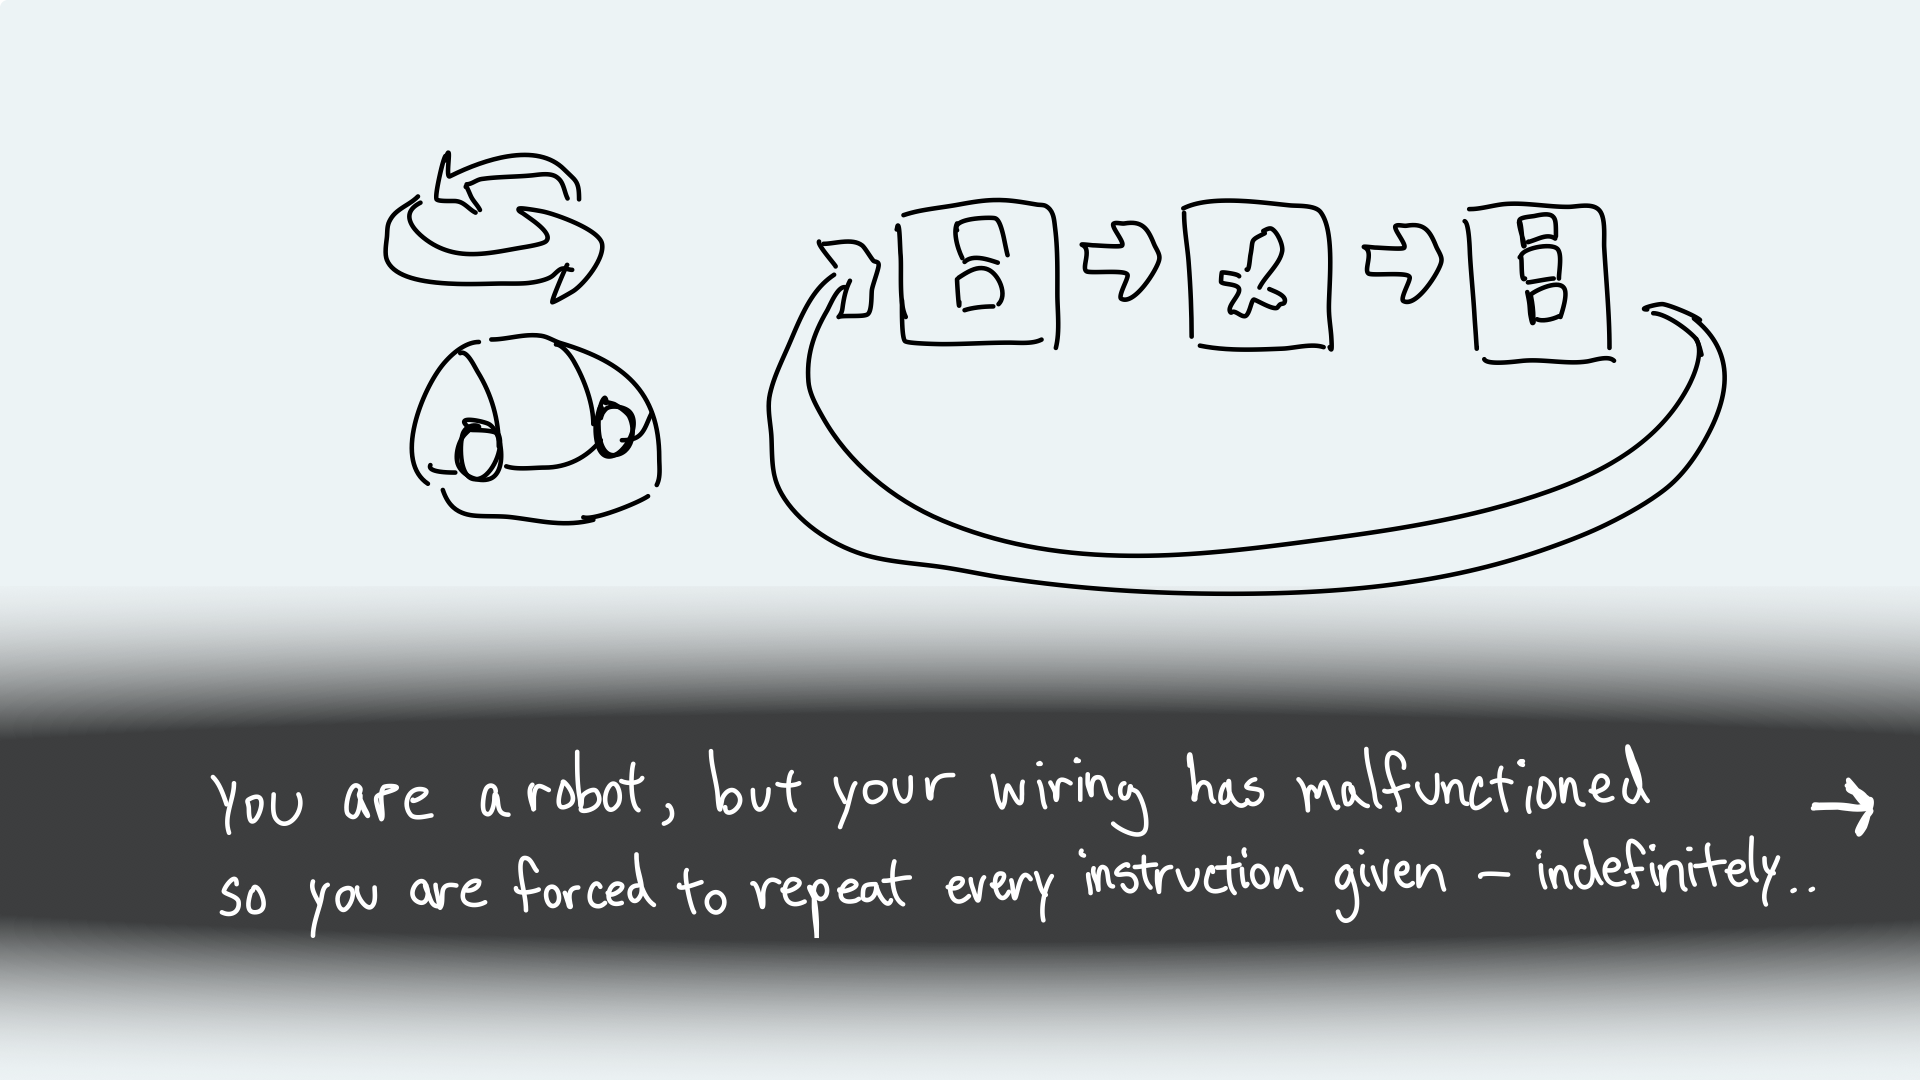 You are a robot, but your wiring has malfunctioned
so you are forced to repeat every instruction given – indefinitely..